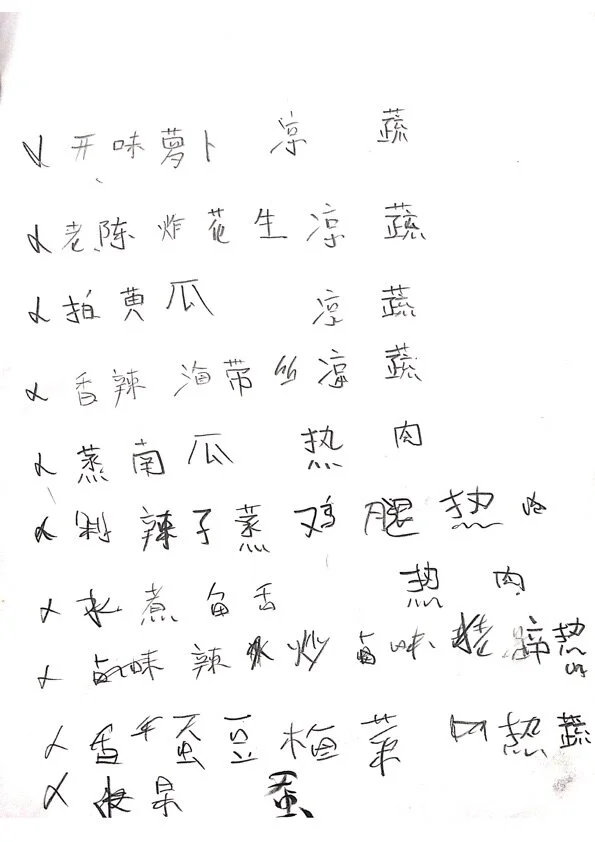 开味萝卜 凉 蔬
老陈炸花生 凉 蔬
拍黄瓜 凉 蔬
香辣海带丝 凉 蔬
蒸南瓜 热 肉
剁辣子蒸鸡腿 热
水煮鱼舌 热 肉
卤味辣炒卤味 蹄 热
香 蚕豆梅菜 热 蔬
水果